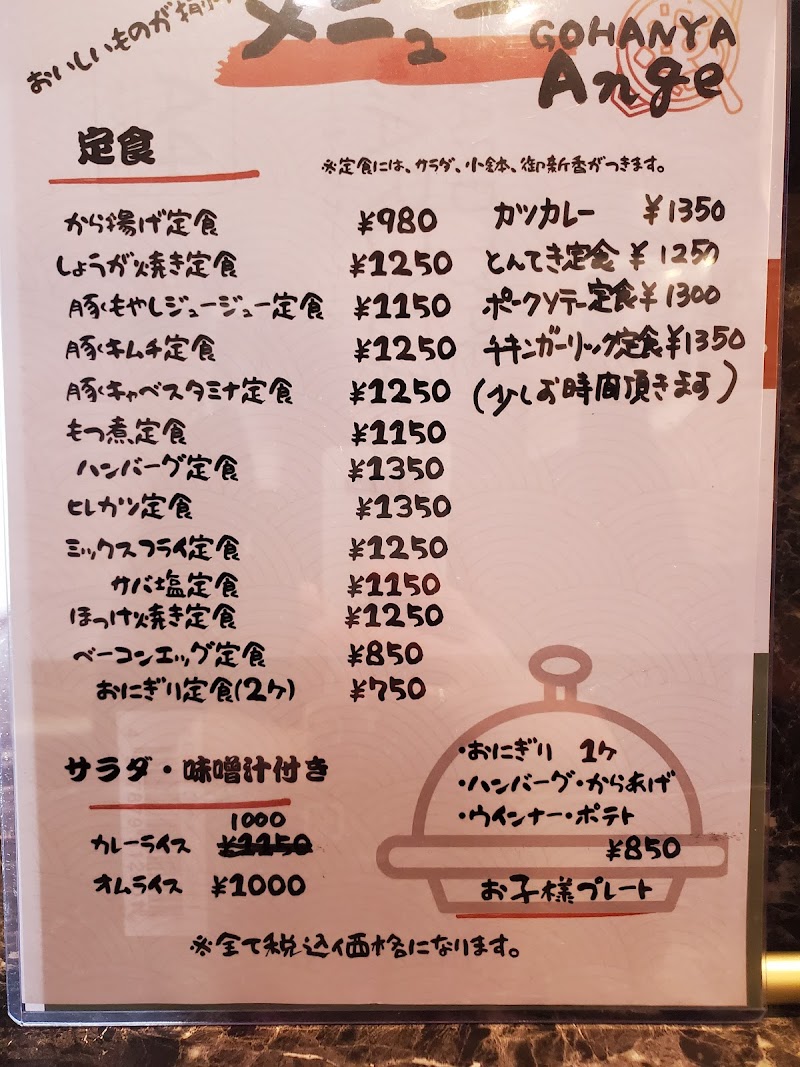 おいしいものが揃
メニュー
GOHANYA
Ange
定食
※定食には、サラダ、小鉢、御新香がつきます。
から揚げ定食 ¥980
しょうが焼き定食 ¥1250
豚もやしジュージュー定食 ¥1150
豚キムチ定食 ¥1250
豚キャベスタミナ定食 ¥1250
もつ煮定食 ¥1150
ハンバーグ定食 ¥1350
ヒレカツ定食 ¥1350
ミックスフライ定食 ¥1250
サバ塩定食 ¥1150
ほっけ焼き定食 ¥1250
ベーコンエッグ定食 ¥850
おにぎり定食(2ケ) ¥750
カツカレー ¥1350
とんてき定食 ¥1250
ポークソテー定食 ¥1300
チキンガーリック定食 ¥1350
(少しお時間頂きます)
サラダ・味噌汁付き
1000
カレーライス ¥1150
オムライス ¥1000
・おにぎり 1ケ
・ハンバーグ・からあげ
・ウインナー・ポテト
¥850
お子様プレート
※全て税込価格になります。